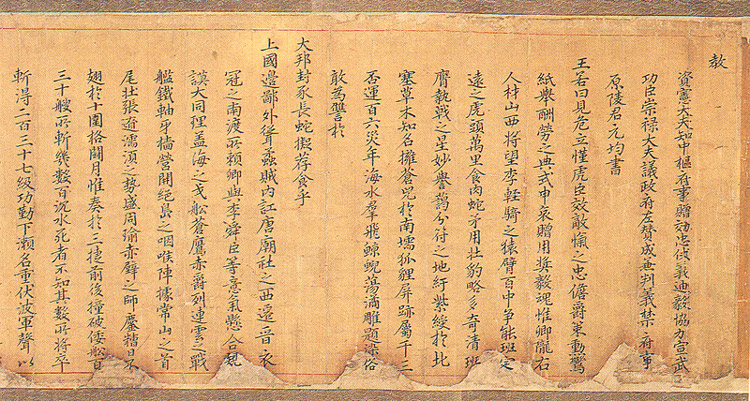 敎
資憲大夫知中樞府事贈効忠仗義迪毅協力宣武
功臣崇祿大夫議政府左贊成兼判義禁府事
原陵君元均書
王若曰見危立慬虎臣效敵愾之忠儋爵策勳鸞
紙舉酬勞之典式申哀贈用奬毅魂惟卿隴右
人材山西將望李輕騎之猿臂百中第能班定
遠之虎頭萬里食肉蛇矛用壯豹略多奇清班
膺執戟之星妙譽藹分符之地紆紫綬於北
塞草木知名擁蒼兕於南壖狐狸屏跡屬千三
否運百六災年海水羣飛鯨鯢蕩潏雕題染俗
敢爲讐於
大邦封豕長蛇擬荐食乎
上國邊鄙外聳蟊賊內訌唐廟社之西遷晉衣
冠之南渡所賴卿與李舜臣等意氣懸合
謨大同理盖海之戈舩蒼鷹赤爵列連雲之戰
艦鐵軸牙檣營開絶島之咽喉陣據常山之首
尾壯張遼濡須之勢盛周瑜赤壁之師鏖糟日不
廻於十圍格鬪月惟奏於三捷前後撞破倭舩百
三十艘所斬幾數百沉水死者不知其數所將卒
斬得二百三十七級功勤下瀨名重伏波軍聲以